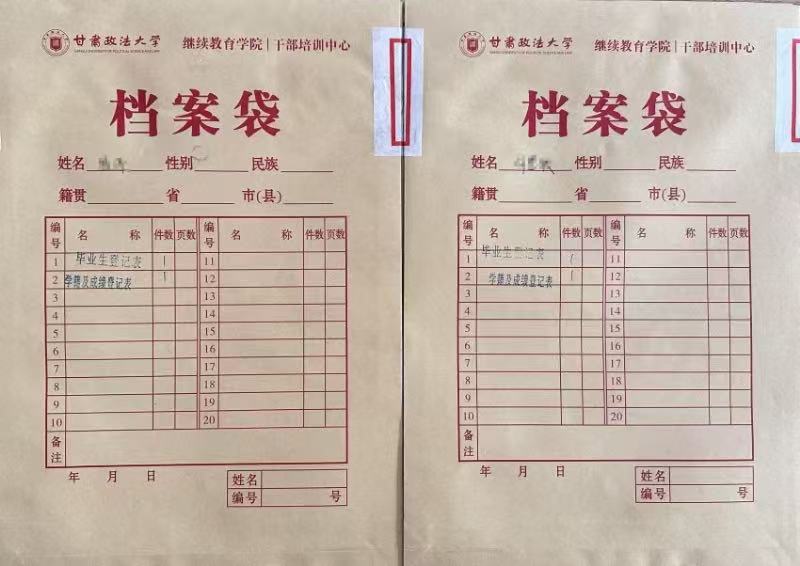 甘肃政法大学 继续教育学院|干部培训中心
档案袋
姓名 性别 民族
籍贯 省 市(县)
编号 名称 件数 页数 编号 名称 件数 页数
1 毕业生登记表 1 11
2 学籍及成绩登记表 1 12
3 13
4 14
5 15
6 16
7 17
8 18
9 19
10 20
备注
年 月 日
姓名
编号 号
甘肃政法大学 继续教育学院|干部培训中心
档案袋
姓名 性别 民族
籍贯 省 市(县)
编号 名称 件数 页数 编号 名称 件数 页数
1 毕业生登记表 1 11
2 学籍及成绩登记表 1 12
3 13
4 14
5 15
6 16
7 17
8 18
9 19
10 20
备注
年 月 日
姓名
编号 号